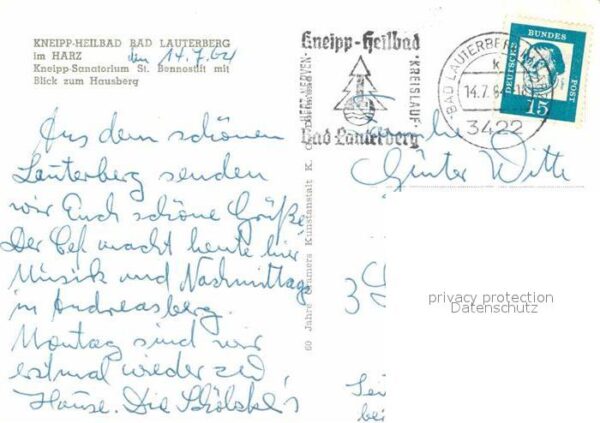 KNEIPP-HEILBAD BAD LAUTERBERG
im HARZ
Kneipp-Sanatorium St. Bennostift mit
Blick zum Hausberg
den 14.7.64
Aus dem schönen
Lauterberg senden
wir Euch schöne Grüße
Der Cef macht heute hier
Musik und Nachmittags
in Andreasberg.
Montag sind wir
erstmal wieder zu
Hause. Die Schölskel's
60 Jahre Kunstanstalt K.
Kneipp-Heilbad
HERZ·NERVEN·
KREISLAUF
Bad Lauterberg
BAD LAUTERBERG
k
14.7.64
3422
DEUTSCHE
BUNDES
POST
15
Günter Witte
3
privacy protection
Datenschutz
bei